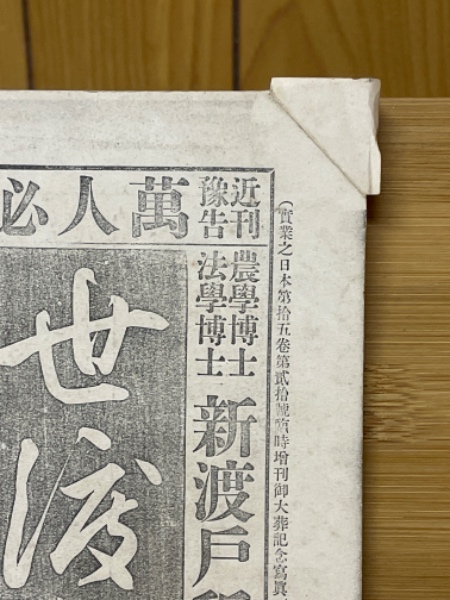 (實業之日本第拾五卷第貳拾號臨時增刊御大葬記念寫眞
近刊
豫告
萬人必
農學博士
法學博士
新渡戶
世渡